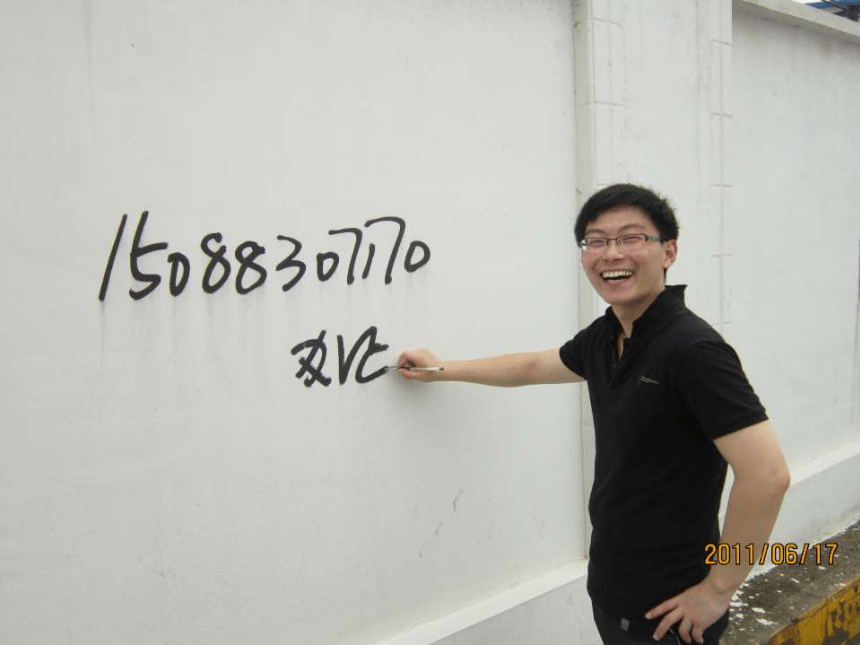 15088307170
办证
2011/06/17